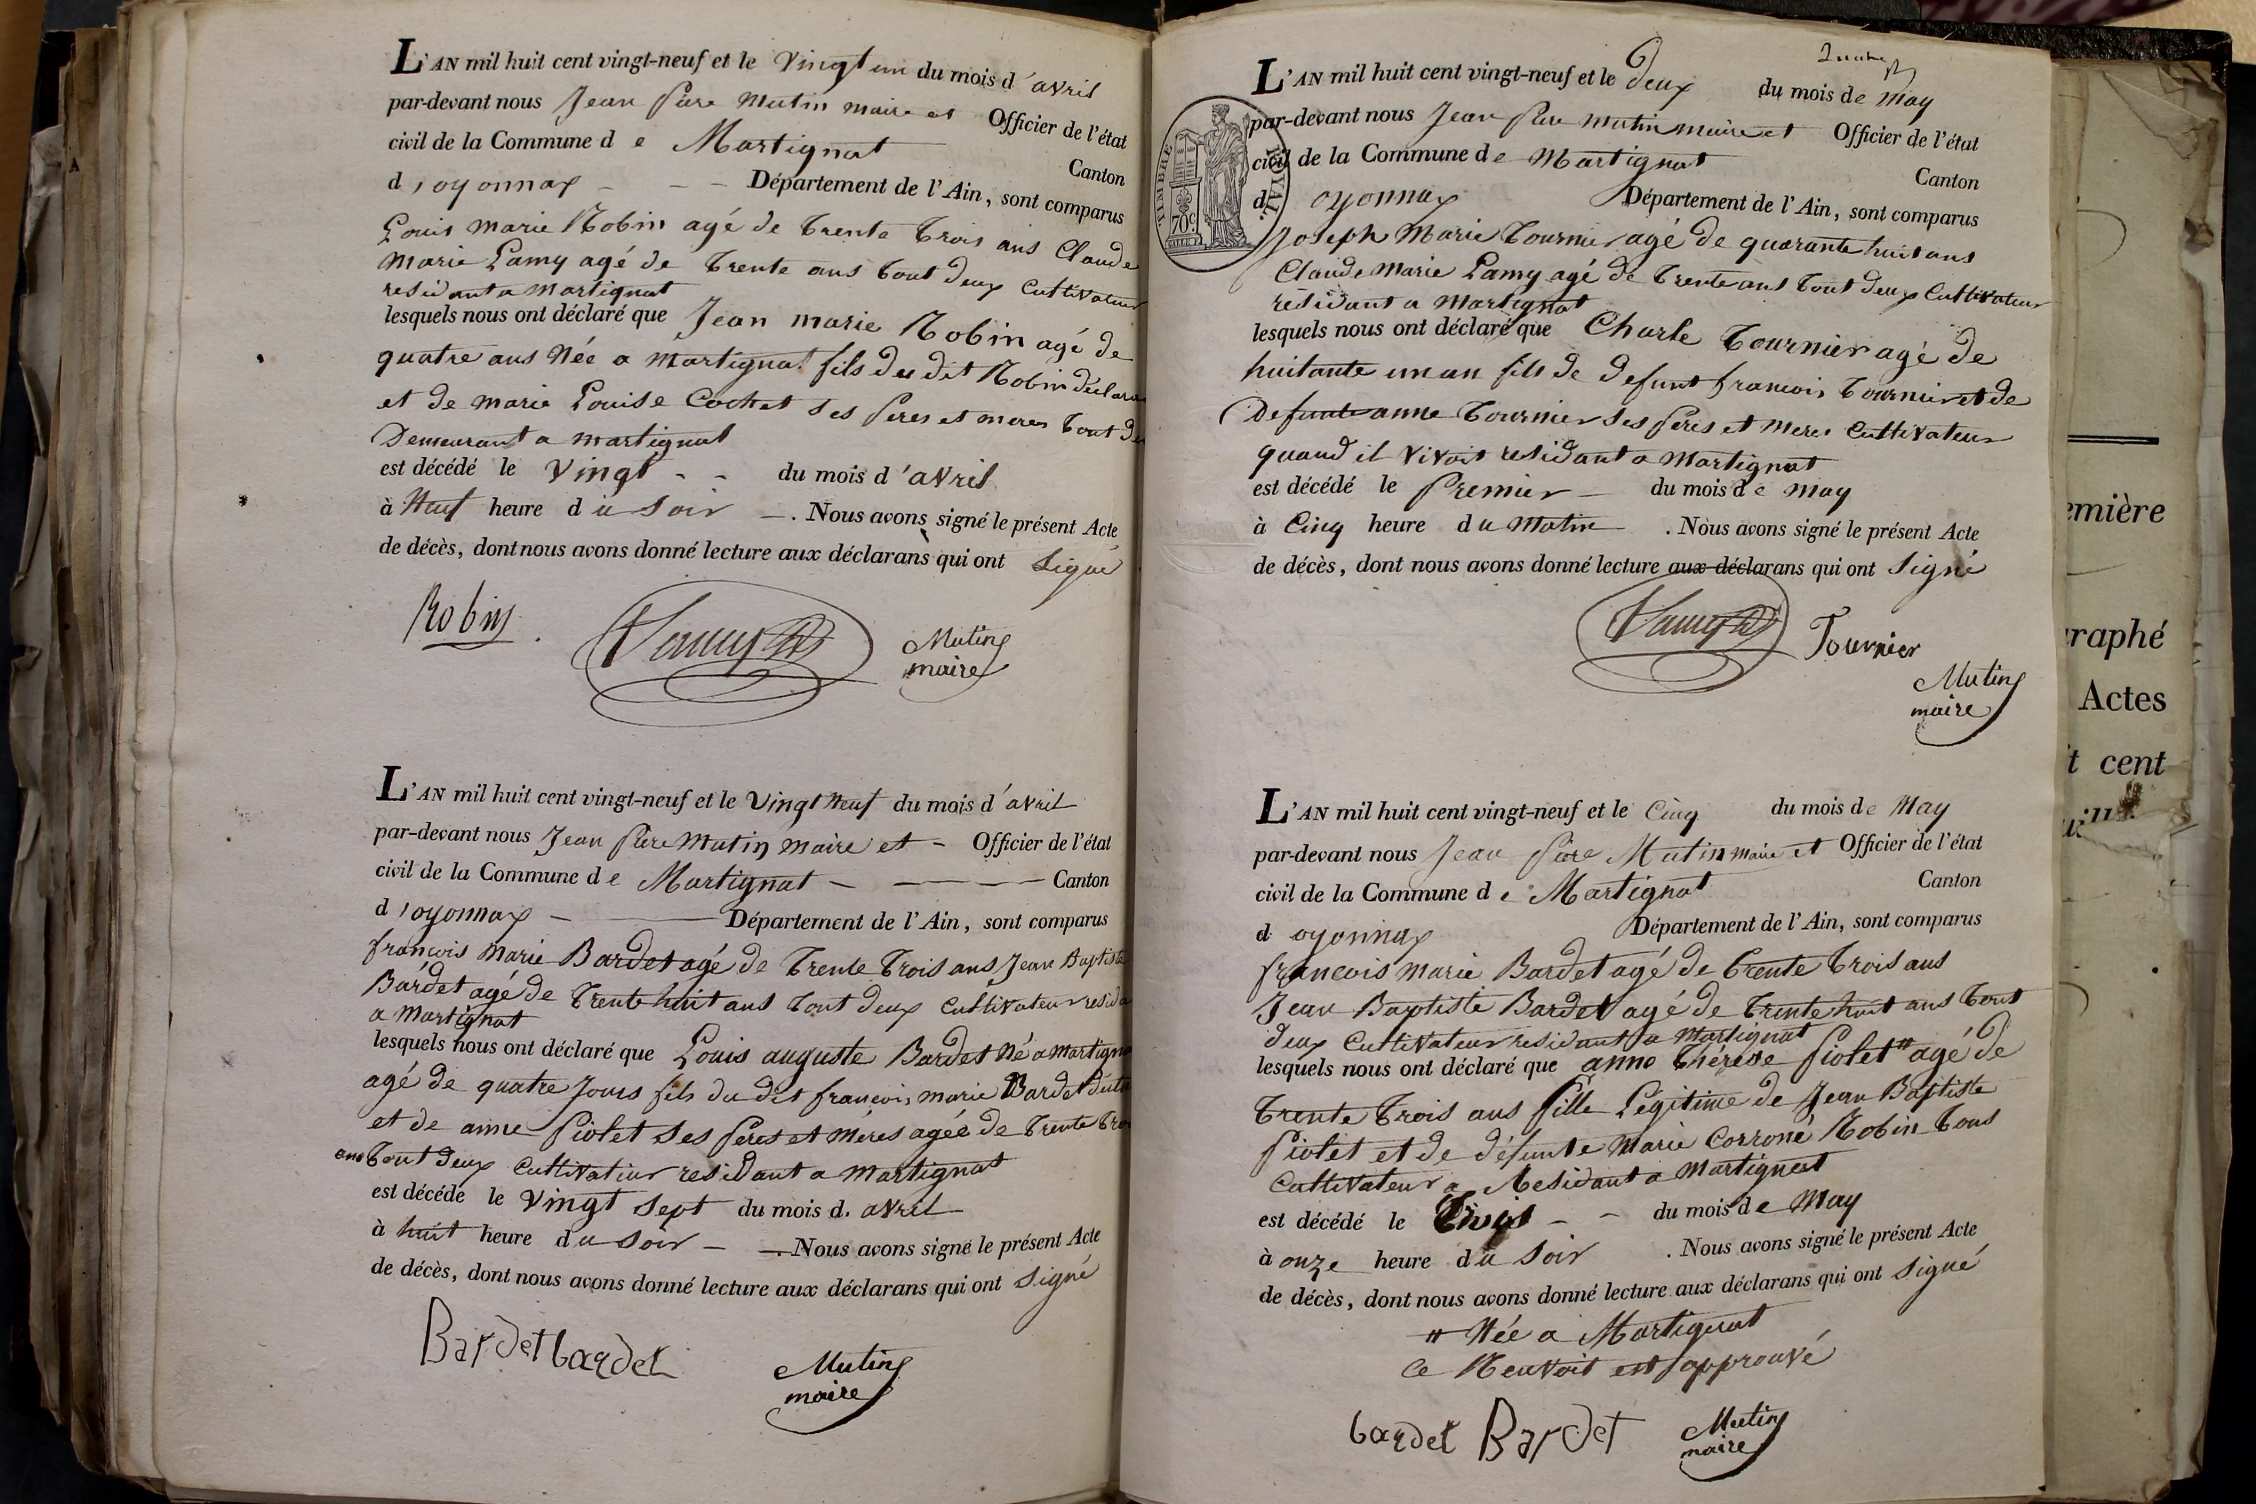 L'AN mil huit cent vingt-neuf et le Vingt un du mois d'avril
par-devant nous Jean Piere Mutin maire et Officier de l'état
civil de la Commune de Martignat Canton
d'oyonnax - - - Département de l'Ain, sont comparus
Louis Marie Robin agé de trente trois ans Claude
Marie Lamy agé de trente ans tout deux Cultivateur
residant a Martignat
lesquels nous ont déclaré que Jean marie Robin agé de
quatre ans Née a Martignat fils du dit Robin déclara
et de marie Louise Cochet ses peres et meres tout de
Demeurant a martignat
est décédé le vingt - - du mois d'avril
à Neuf heure du Soir - . Nous avons signé le présent Acte
de décès, dont nous avons donné lecture aux déclarans qui ont Signé
Robin Lamy Mutin
maire
L'AN mil huit cent vingt-neuf et le Vingt Neuf du mois d'avril
par-devant nous Jean Piere Mutin maire et - Officier de l'état
civil de la Commune de Martignat - Canton
d'oyonnax - Département de l'Ain, sont comparus
françois Marie Bardet agé de trente trois ans Jean Baptiste
Bardet agé de trente huit ans tout deux Cultivateur resida
a Martignat
lesquels nous ont déclaré que Louis auguste Bardet Né a Martigna
agé de quatre Jours fils du dit françois marie Bardet
et de anne Piolet ses peres et méres agée de trente troi
ans tout deux cultivateur residant a Martignat
est décédé le Vingt sept du mois d. avril
à huit heure du soir - - . Nous avons signé le présent Acte
de décès, dont nous avons donné lecture aux déclarans qui ont Signé
Bardet bardet Mutin
maire
TIMBRE ROYAL
70c.
L'AN mil huit cent vingt-neuf et le deux du mois de May
par-devant nous Jean Piere Mutin maire et Officier de l'état
civil de la Commune de Martignat Canton
d. oyonnax Département de l'Ain, sont comparus
Joseph Marie Tournier agé de quarante huit ans
Claude Marie Lamy agé de trente ans tout deux Cultivateur
résidant a Martignat
lesquels nous ont déclaré que Charle Tournier agé de
huitante un an fils de defunt francois Tournier et de
Defunte anne Tournier ses peres et meres Cultivateur
quand il vivoit residant a Martignat
est décédé le Premier - du mois de May
à Cinq heure du Matin . Nous avons signé le présent Acte
de décès, dont nous avons donné lecture aux déclarans qui ont Signé
Lamy Tournier
Mutin
maire
L'AN mil huit cent vingt-neuf et le Cinq du mois de May
par-devant nous Jean Piere Mutin maire et Officier de l'état
civil de la Commune de Martignat Canton
d oyonnax Département de l'Ain, sont comparus
francois marie Bardet agé de trente trois ans
Jean Baptiste Bardet agé de trente huit ans tout
deux Cultivateur residant a Martignat
lesquels nous ont déclaré que anne Thérèse Piolet # agé de
trente trois ans fille Légitime de Jean Baptiste
Piolet et de défunte Marie Robin tous
Cultivateur a Residant a Martignat
est décédé le trois - - du mois de May
à onze heure du Soir . Nous avons signé le présent Acte
de décès, dont nous avons donné lecture aux déclarans qui ont Signé
# Née a Martignat
Ce Renvoit est approuvé
bardet Bardet Mutin
maire
emière
raphé
Actes
t cent